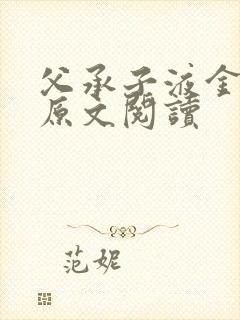 父承子液金
原文閱讀
范妮